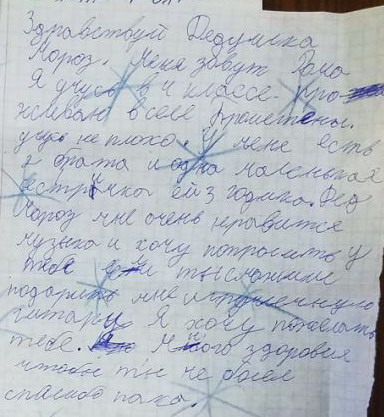 Здравствуй Дедушка
Мороз. Меня завут Рома
Я учусь в 4 классе. Про-
жеваю в селе
учусь не плохо. У меня есть
2 брата и одна маленькая
сестрычка ей 3 годика. Дед
Мороз мне очень нравится
музыка и хочу попросить у
тебя если ты сможеш
подарить мне игрушечную
гитару Я хочу пожелать
тебе. Много здоровия
чтобы ты не болел
спасибо пака.